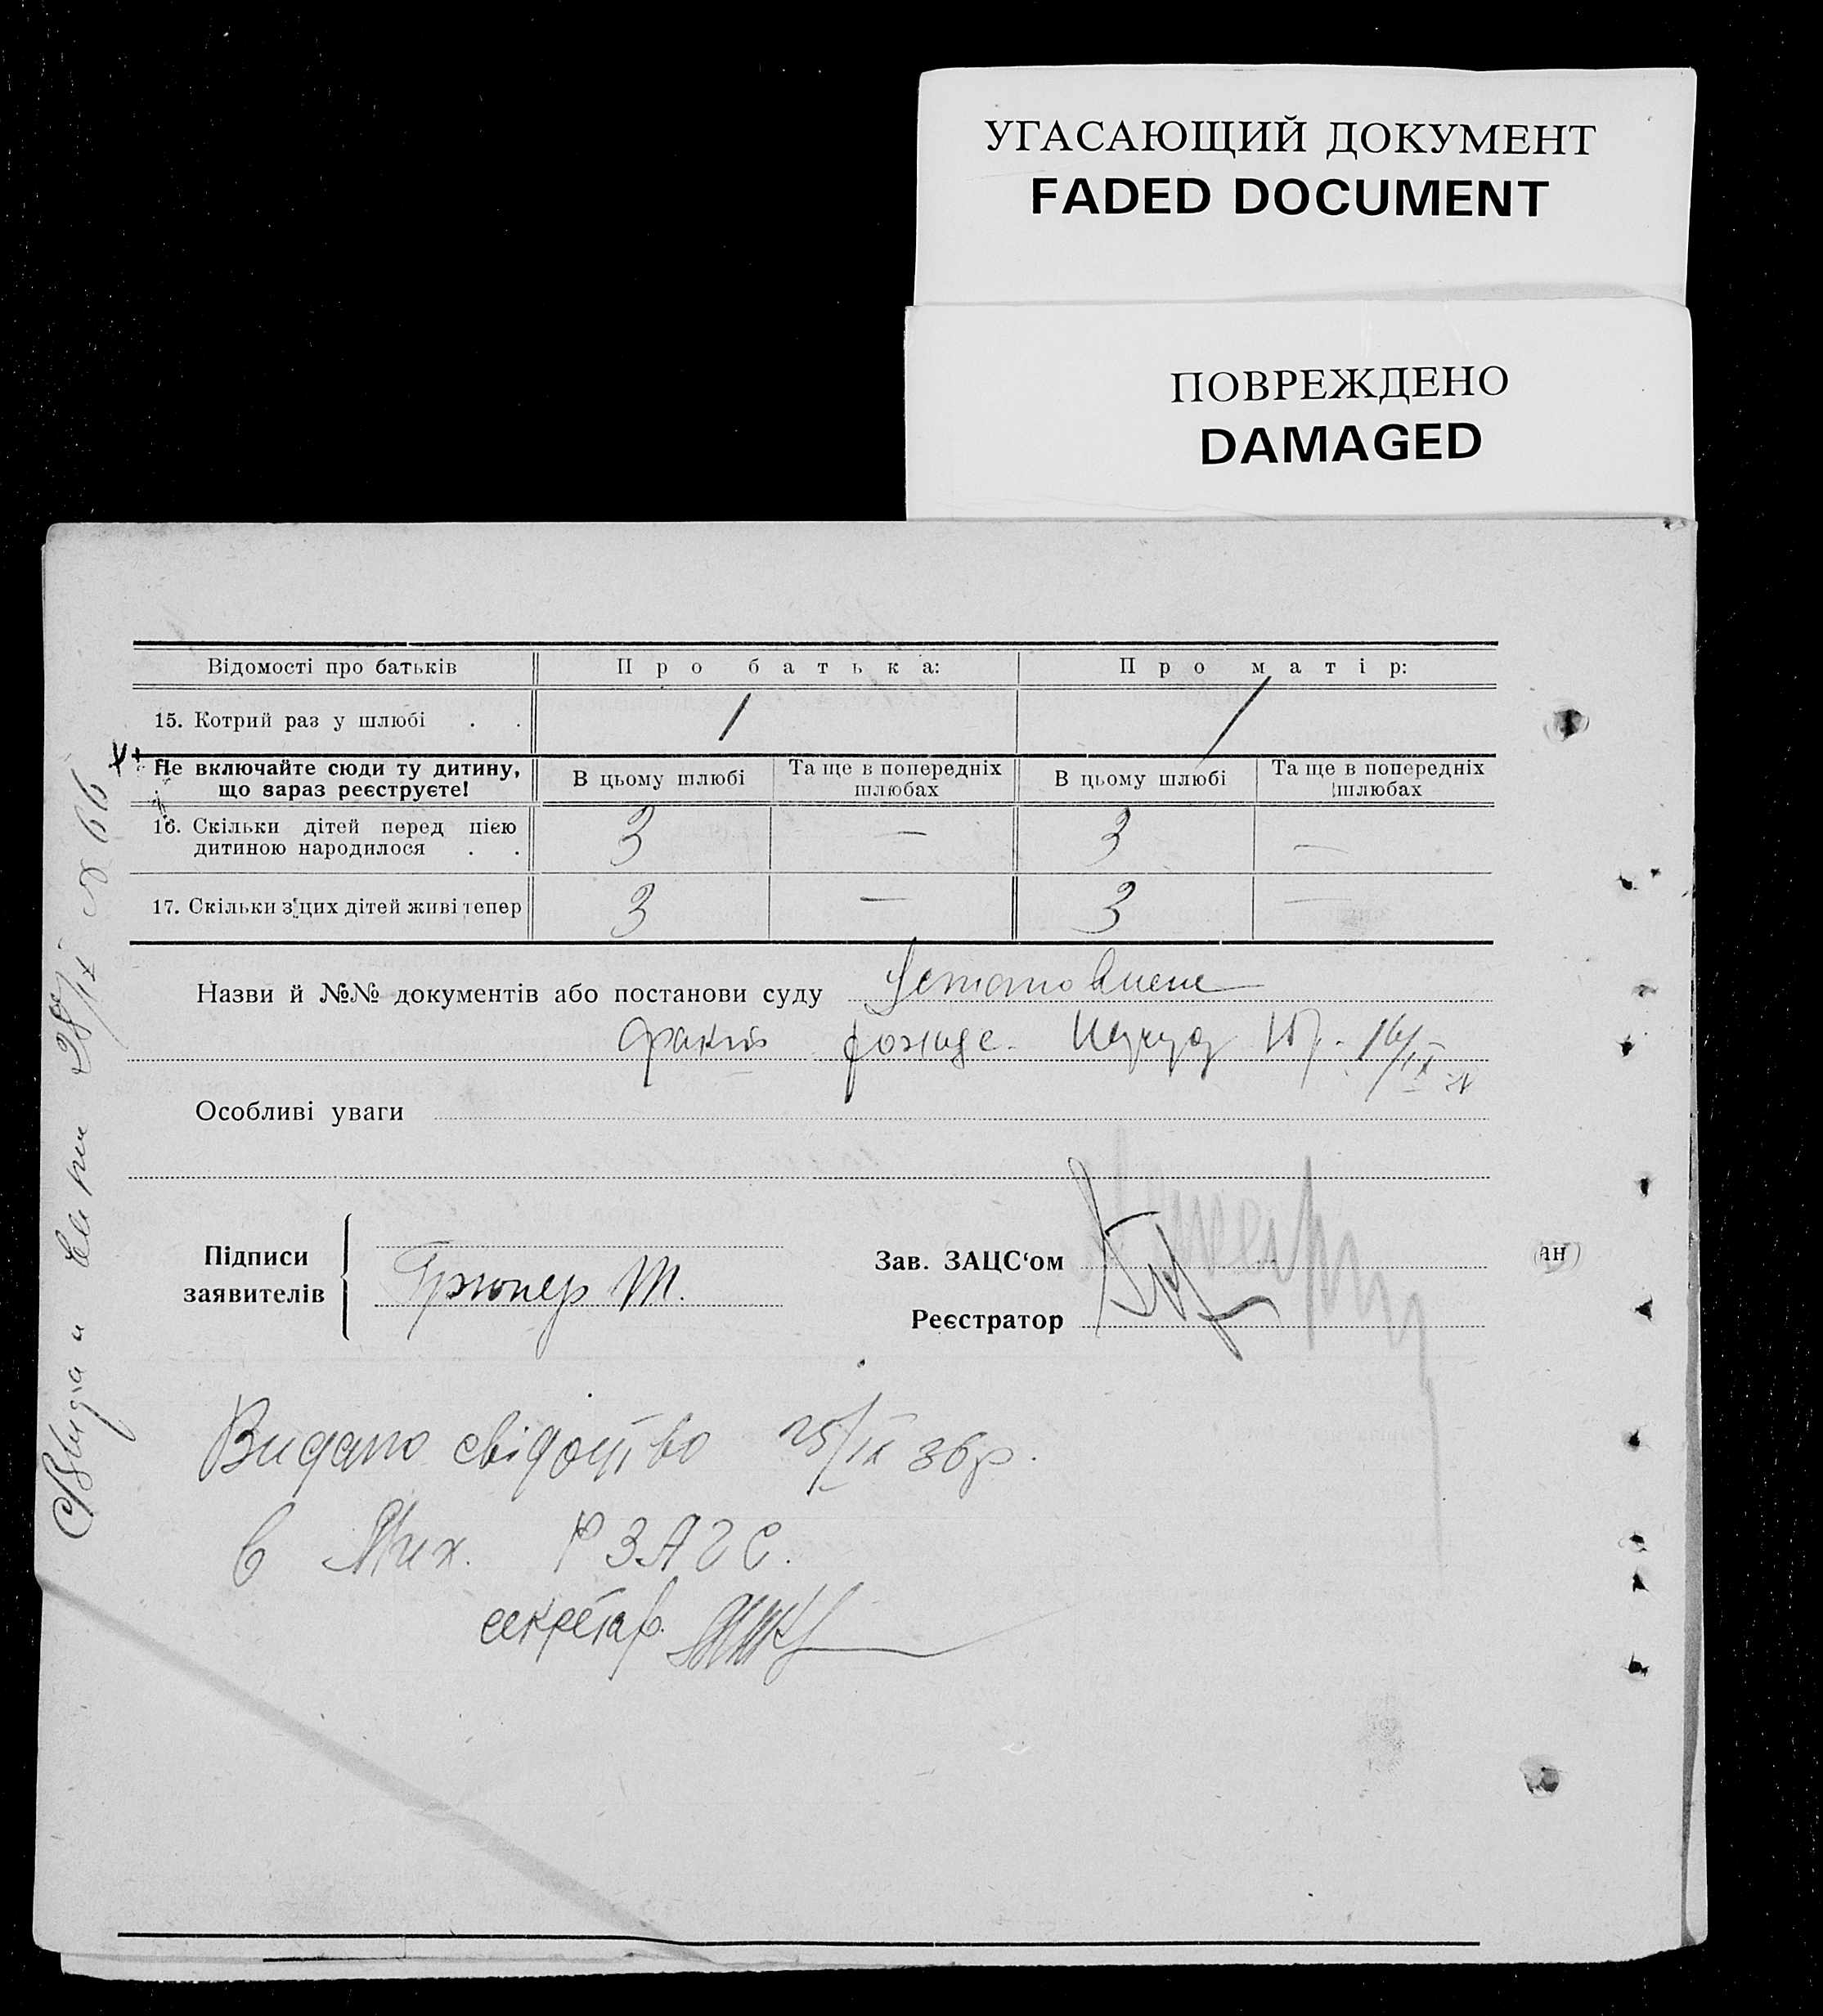 УГАСАЮЩИЙ ДОКУМЕНТ
FADED DOCUMENT
ПОВРЕЖДЕНО
DAMAGED
Відомості про батьків Про батька: Про матір:
15. Котрий раз у шлюбі . . 1 1
Не включайте сюди ту дитину, що зараз реєструєте! В цьому шлюбі Та ще в попередніх шлюбах В цьому шлюбі Та ще в попередніх шлюбах
16. Скільки дітей перед цією
дитиною народилося . . 3 — 3 —
17. Скільки з цих дітей живі тепер 3 — 3 —
Назви й №№ документів або постанови суду
16/IX
Особливі уваги
Підписи
заявителів
М.
Зав. ЗАЦС‘ом
Реєстратор
ан
Видано свідоцтво 25/IX 36р.
в Мих. РЗАГС.
секретар.
28/IX N 66